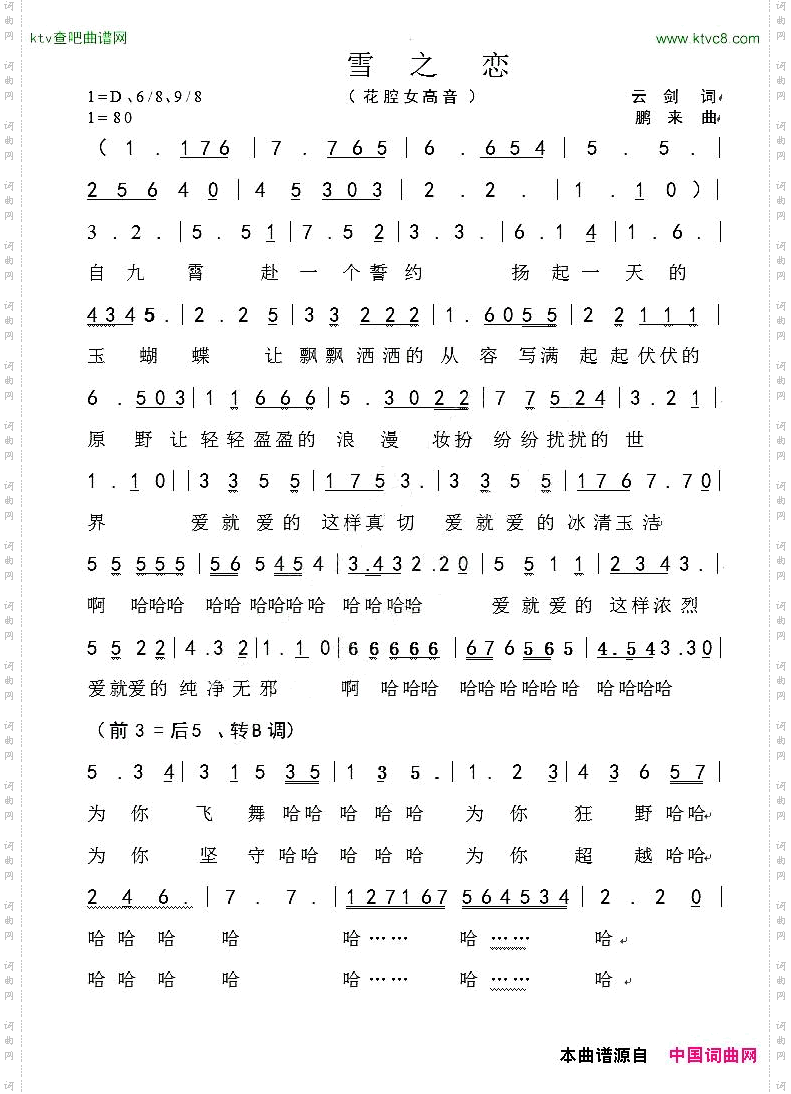 ktv查吧曲谱网 www.ktvc8.com
雪 之 恋
1=D、6/8、9/8 （花腔女高音） 云 剑 词
1=80 鹏 来 曲
（ 1 . 176 | 7 . 765 | 6 . 654 | 5 . 5 . |
2 5 6 4 0 | 4 5 303 | 2 . 2 . | 1 . 1 0 ）|
3 . 2 . | 5 . 5 1 | 7 . 5 2 | 3 . 3 . | 6 . 1 4 | 1 . 6 . |
自 九 霄 赴 一 个 誓 约 扬 起 一 天 的
4345 . | 2 . 2 5 | 3 3 2 2 2 | 1 . 6055 | 2 2 1 1 1 |
玉 蝴 蝶 让 飘飘 洒洒的 从 容 写满 起起伏伏的
6 . 503 | 1 1 666 | 5 . 3022 | 7 7 524 | 3 . 2 1 |
原 野 让 轻轻盈盈的 浪 漫 妆扮 纷纷扰扰的 世
1 . 1 0 | | 3 3 5 5 | 1753 . | 3 3 5 5 | 1767 . 70 |
界 爱 就 爱 的 这样真 切 爱 就 爱 的 冰清玉洁
5 5 555 | 56 5454 | 3.432 . 20 | 5 5 1 1 | 2343 . |
啊 哈哈哈 哈哈 哈哈哈哈 哈哈哈哈 爱 就 爱 的 这样浓烈
5 5 2 2 | 4 . 3 2 | 1 . 1 0 | 6 6 6 6 6 | 676 565 | 4 . 543 . 30 |
爱就爱的 纯 净 无 邪 啊 哈哈哈 哈哈哈哈哈哈 哈哈哈哈
（前 3 = 后5 、转B 调）
5 . 3 4 | 3 1 5 35 | 1 3 5 . | 1 . 2 3 | 4 3 6 57 |
为 你 飞 舞 哈哈 哈 哈 哈 为 你 狂 野 哈哈
为 你 坚 守 哈哈 哈 哈 哈 为 你 超 越 哈哈
2 4 6 . | 7 . 7 . | 127167 564534 | 2 . 2 0 |
哈 哈 哈 哈 哈…… 哈…… 哈
哈 哈 哈 哈 哈…… 哈…… 哈
本曲谱源自 中国词曲网